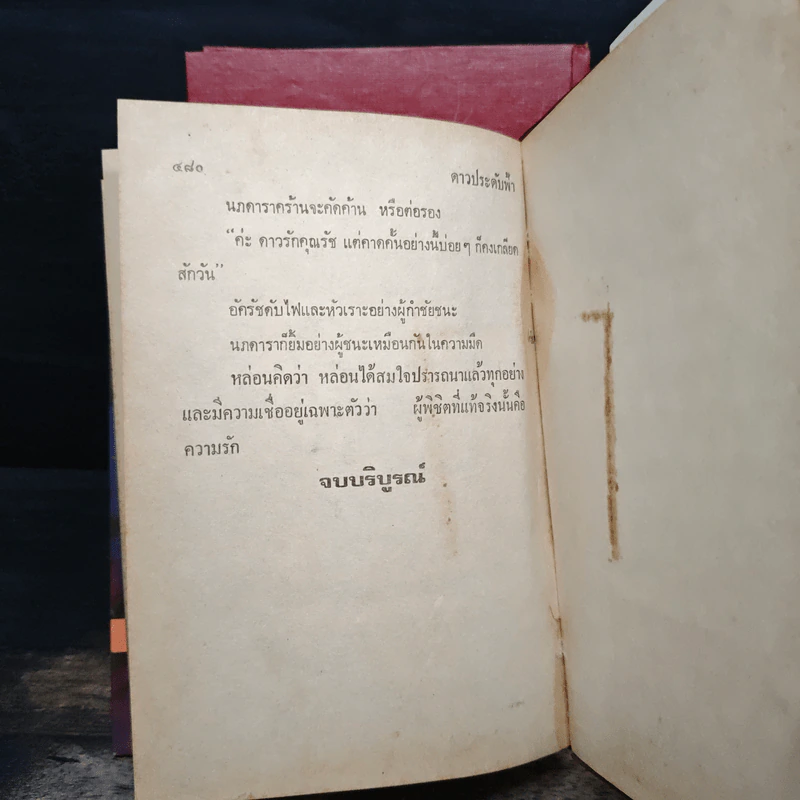 ๔๘๐
ดาวประดับฟ้า
นภดาราคร้านจะคัดค้าน หรือต่อรอง
"ค่ะ ดาวรักคุณรัช แต่คาดคั้นอย่างนี้บ่อยๆ ก็คงเกลียด
สักวัน"
อัครัชดับไฟและหัวเราะอย่างผู้กำชัยชนะ
นภดาราก็ยิ้มอย่างผู้ชนะเหมือนกันในความมืด
หล่อนคิดว่า หล่อนได้สมใจปรารถนาแล้วทุกอย่าง
และมีความเชื่ออยู่เฉพาะตัวว่า ผู้พิชิตที่แท้จริงนั้นคือ
ความรัก
จบบริบูรณ์